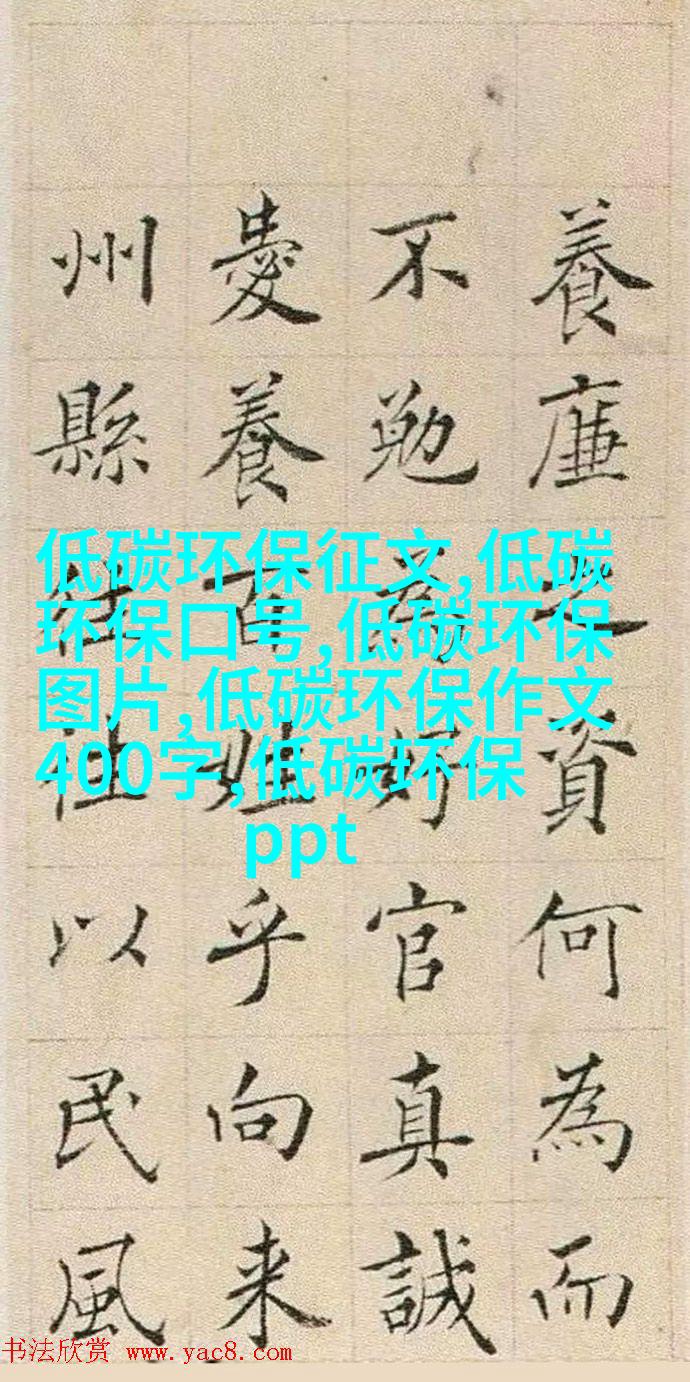 養廉之資何為而
不勉為好官真誠
愛養百姓乎向来
州縣往往以民風
低碳环保征文,低碳
环保口号,低碳环保
图片,低碳环保作文
400字,低碳环保
ppt
书法欣赏 www.yac8.com